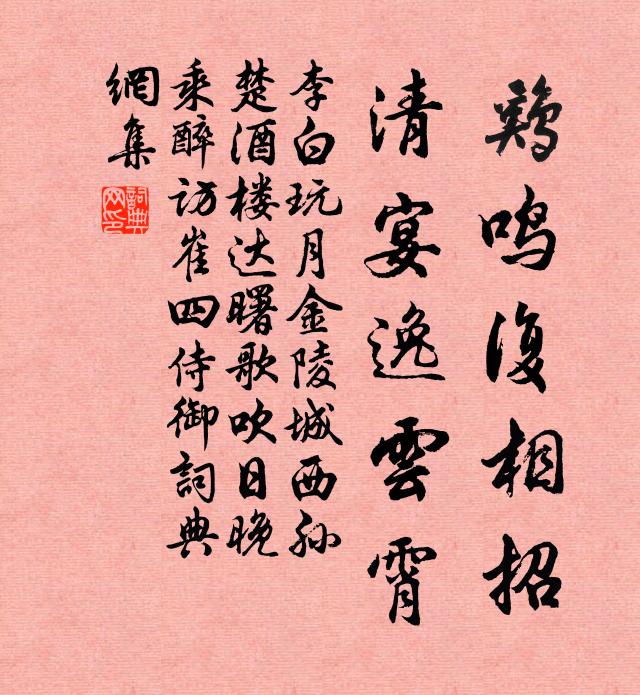 鷄鸣復相招
清宴逸雲霄
李白玩月金陵城西孙
楚酒楼达曙歌吹日晚
乘醉访崔四侍御詞典
網集
詞典
网印